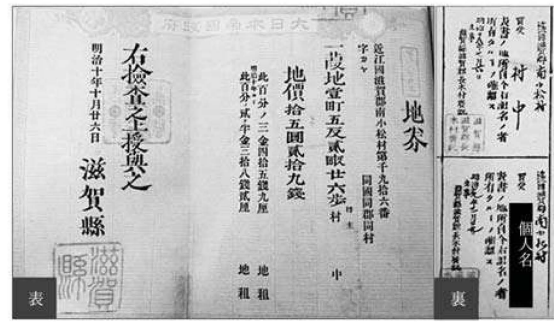 大日本帝國政府
地券
近江國滋賀郡南小松村第千九拾六番
字カケ
同國同郡同村
一段地壹町五反貳畝廿六歩
持主
村中
地價拾五圓貳拾九錢
此百分ノ三金四拾五錢九厘
地租
明治十年ヨリ
此百分ノ貳半金三拾八錢貳厘
地租
右檢査之上授與之
明治十年十月廿六日
滋賀縣
表
滋賀郡南小松村
買受
村中
表書ノ地所自今右記名ノ者
所有タルノ確證ス
滋賀郡南小松村
買受
個人名
表書ノ地所自今右記名ノ者
所有タルノ確證ス
裏